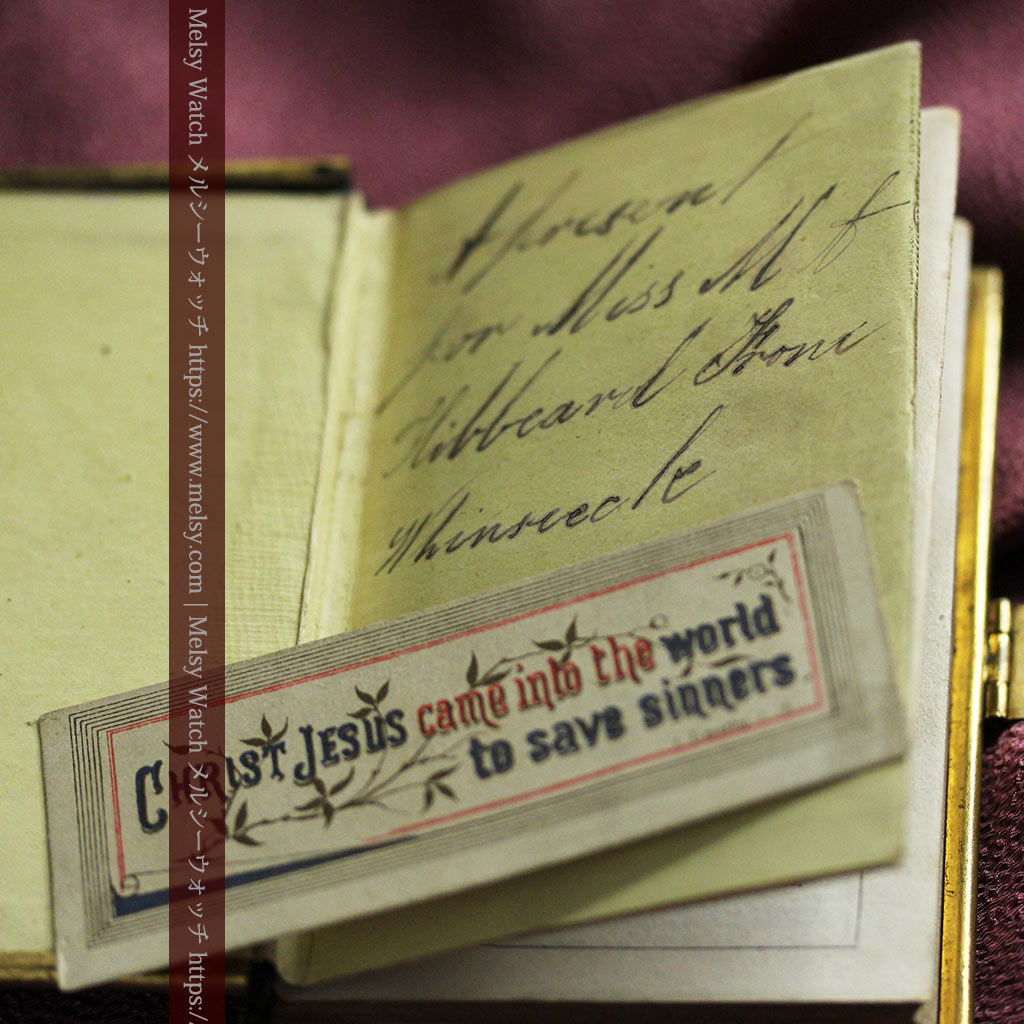 A present
for Miss M f
Hibbeard From
CHRIST JESUS came into the world
to save sinners.
Melsy Watch メルシーウォッチ https://www.melsy.com | Melsy Watch メルシーウォッチ https:/